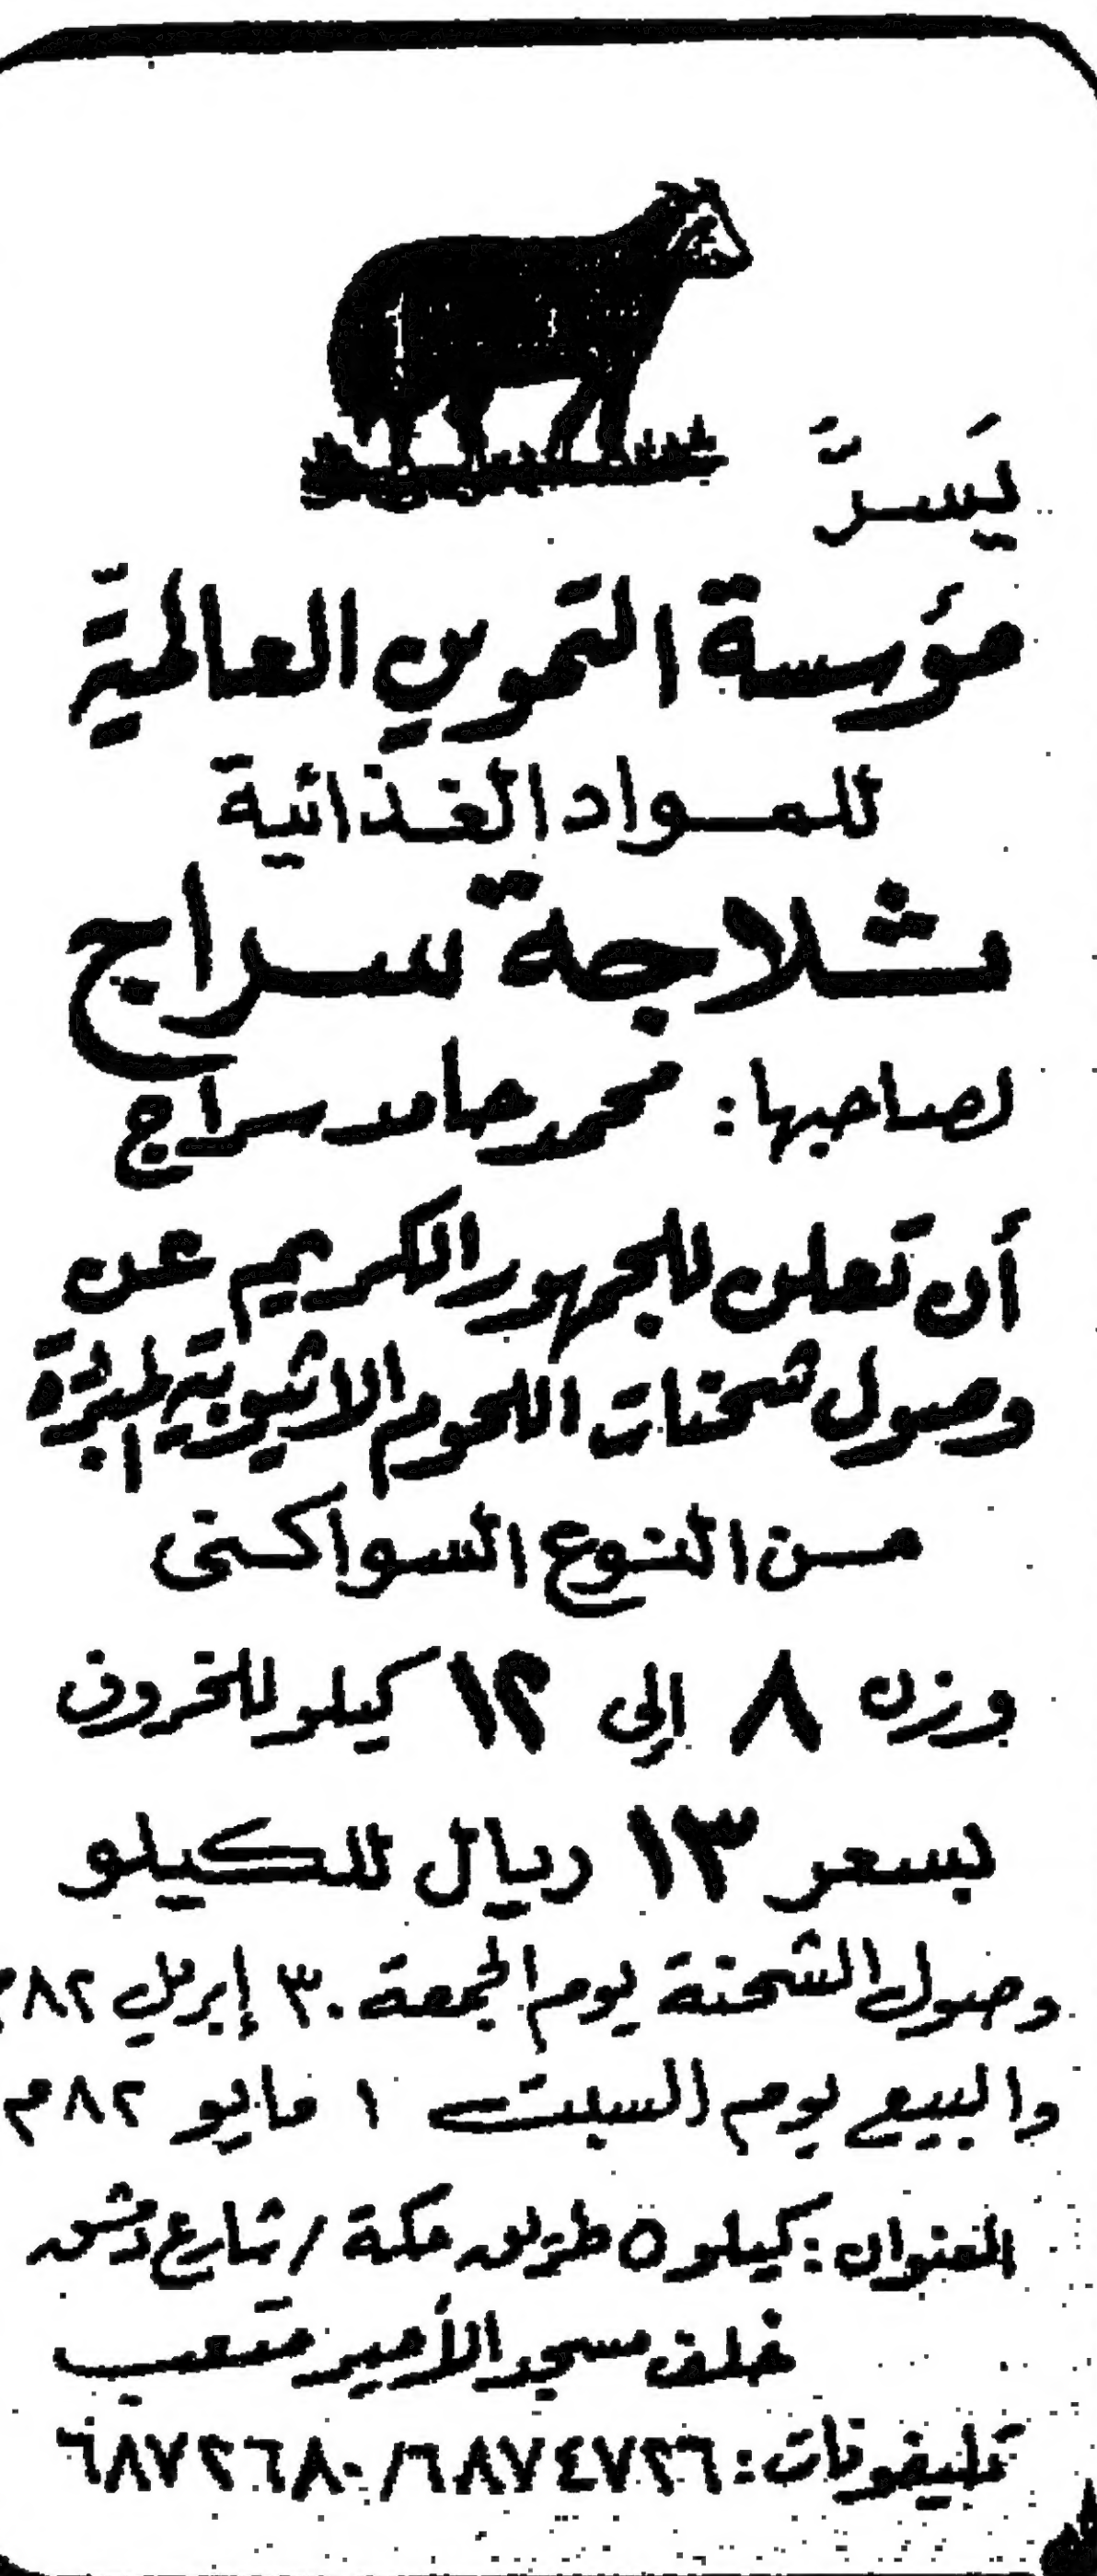 يَسرَّ
مؤسسة التموين العالميّة
للمواد الغذائية
ثلاجة سراج
لصاحبها : محمد حامد سراج
أن تعلن للجمهور الكريم عن
وصول شحنات اللحوم الاثيوبية المبرّدة
من النوع السواكنى
وزن ٨ إلى ١٢ كيلو للخروف
بسعر ١٣ ريال للكيلو
وصول الشحنة يوم الجمعة ٣٠ إبريل ٨٢م
والبيع يوم السبت ١ مايو ٨٢م
العنوان : كيلو ٥ طريق مكة / شارع دمشق
خلف مسجد الأمير متعب
تليفونات : ٦٨٧٤٧٢٦/ ٦٨٧٢٦٨٠